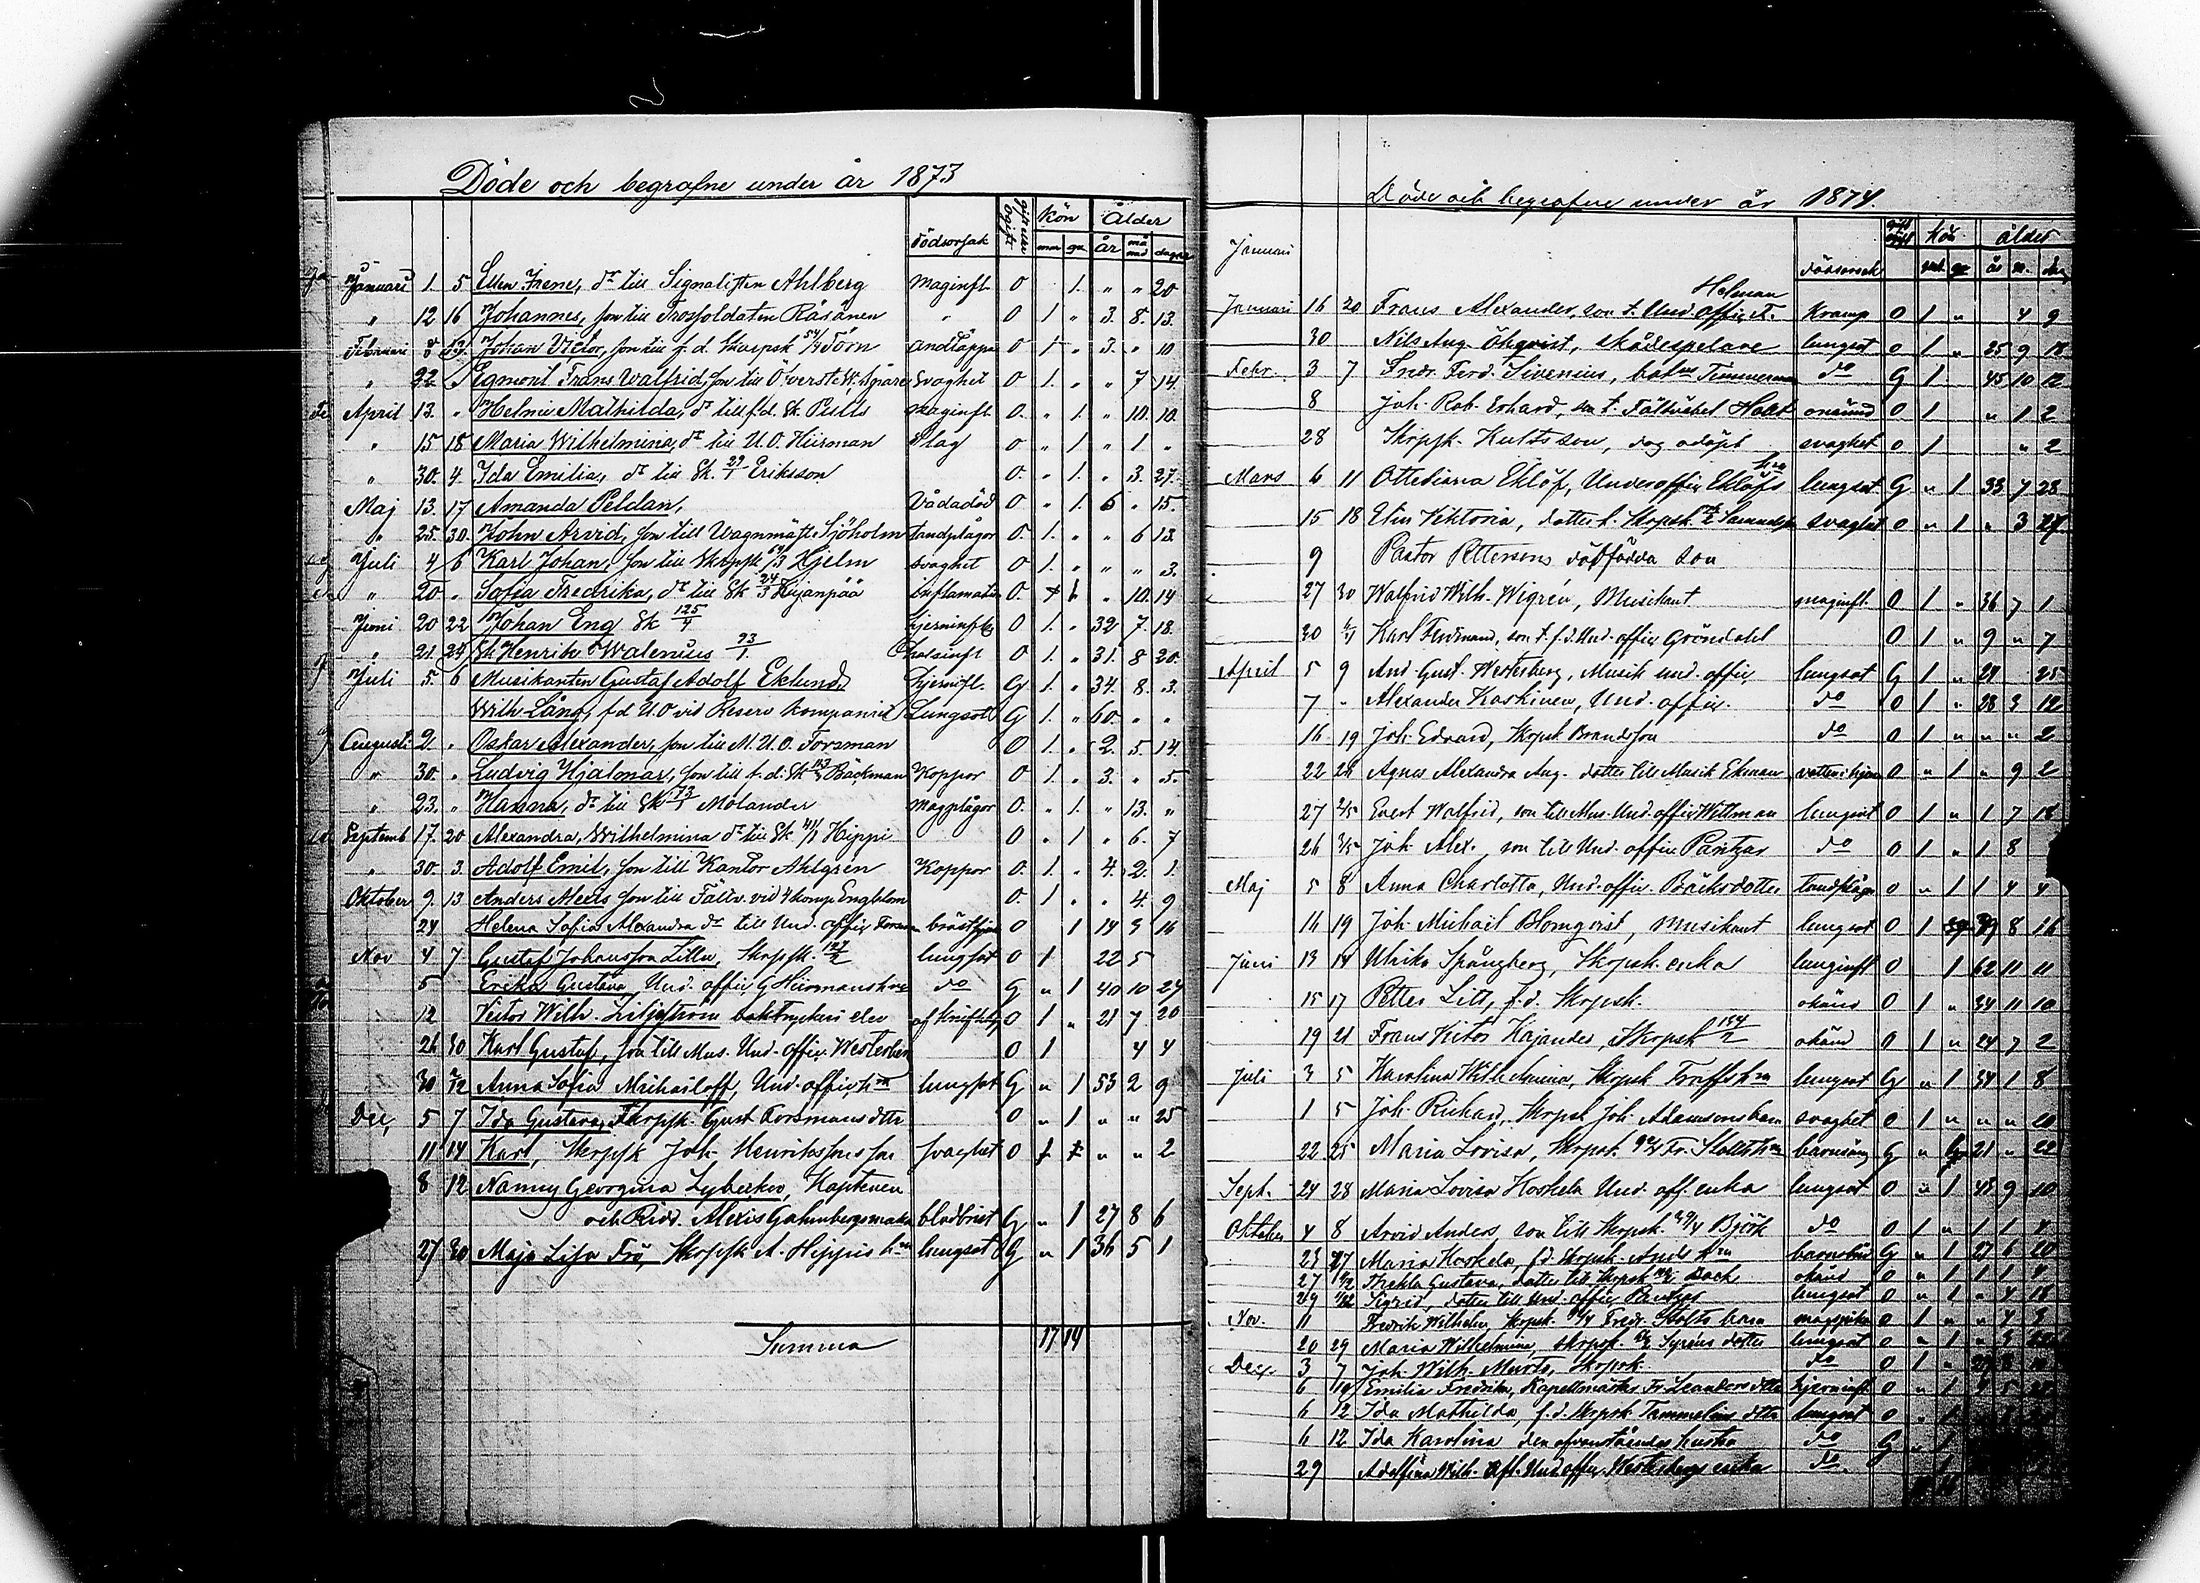 Döde och begrafne under år 1873
dödsorsak gift eller ogift Kön Ålder
man qv. år månad dagar
Januari 1. 5 Ellen Irene, dr till Signalisten Ahlberg Maginfl. O 1. " " 20
" 12 16 Johannes, son till Trossoldaten Räsänen " O 1 " 3. 8. 13.
Februari 8 13. Johan Victor, son till f. d. Skarpsk 54/4 Törn andtäppa O 1 " 3. " 10
" 22 Egmont Frans Walfrid, son till Öfverste W. Svaghet O 1. " " 7 14.
April 13. " Helmi Mathilda, dr till f.d. Sk. maginfl. O. " 1. " 10. 10.
" 15 18 Maria Wilhelmina, dr till U.O. Hiisman Slag O " 1 " 1 "
" 30. 4. Ida Emilia, dr till Sk. 29/1 Eriksson O. " 1. " 3. 27.
Maj 13. 17 Amanda Peldan, Vådadöd O " 1. 6 " 15.
" 25. 30. John Arvid, son till Wagnmäst. Sjöholm tandplågor O. 1. " " 6 13.
Juli 4 6 Karl Johan, son till Skarpsk 64/3 Hjelm svaghet O 1. " " " 3.
" 20 " Sofia Fredrika, dr till Sk 24/3 Kujanpää inflamation O " 10. 14
Juni 20 22 Johan Enq Sk 125/4 hjerninfl. O 1. " 32 7. 18.
" 21. 24 Sk Henrik Walenius 93/1. halsinfl O 1. " 31. 8 20.
Juli 5. 6 Musikanten Gustaf Adolf Eklund, hjerninfl. G 1. " 34. 8. 3.
Wilh. Lång, f d U.O vid Reserv Kompaniet Lungsot G 1. " 60. " "
Augusti 21. " Oskar Alexander, son till M. U. O. Forsman O 1. " 2. 5. 14.
" 30. " Ludvig Hjalmar, son till f. d. Sk Bäckman Koppor O 1. " 3. " 5.
" 23. " Hanna, dr till Sk 73/1 Molander Magplågor O. " 1. " 13. "
Septemb 17. 20 Alexandra Wilhelmina dr till Sk 41/1 Hippi O " 1 " 6. 7
" 30. 3. Adolf Emil, son till Kantor Ahlgren Koppor O. 1. " 4. 2. 1.
Oktober 9. 13 Anders son till Fältv. vid 4 komp Engblom O. 1 " " 4. 9
24 Helena Sofia Alexandra dr till Und. offic. Forsman O 1 14 3 16
Nov 4 7 Gustaf Johansson Lillu, Skrpsk. lungsot O 1 22 5
5 Erika Gustava Und. offic. G Hiirmans hru do G " 1 40 10 24
12 Victor Wilh. Liljeström boktryckeri elev O 1 " 21 7 20
26 30 Karl Gustaf, son till Mus. Und. offic. Westerberg O 1 4 4
30 2/12 Anna Sofia Michailoff, Und. offic. hru lungsot G " 1 53 2 9
Dec, 5 7 Ida Gustava, Skrpsk. Gust Forsmans dttr O " 1 " " 25
11 14 Karl, Skrpsk Joh. Henrikssons son svaghet O " " 2
8 12 Nanny Georgina Lybecker, Kaptenen
och Ridd. Alexis Gahmbergs maka blodbrist G " 1 27 8 6
27 30 Maja Lisa Frö, Skrpsk A. Hippis hru lungsot G " 1 36 5 1
Summa 17 14
Döde och begrafne under år 1874.
Januari dödsorsak Kön. ålder
år m. dag
Helman
Januari 16 20 Frans Alexander, son t. Und. offic. F. Kramp O 1 " 4 9
30 Nils Aug. Öhqvist, skådespelare lungsot O 1 " 25 9 18
Febr. 3 7 Fredr. Ferd. Sivenius, batns Timmerman do G 1 45 10 12
8 Joh. Rob. Erhard, son t. Fältväbel Holst O 1 " 1 2
28 Skrpsk. Kults son, dog odöpt svaghet O 1 " 2
Mars 6 11 Ottediana Eklöf, Underoffic Eklöfs hru lungsot G " 1 33 7 28
15 18 Elin Viktoria, dotter t. Skrpsk. svaghet O " 1 " 3 27
9 Pastor Pettersons dödfödda son
27 30 Walfrid Wilh. Wigrén, Musikant maginfl. O 1 " 36 7 1
30 Karl Ferdinand, son t. f.d. Und. offic. Gröndahl O 1 " 9 " 7
April 5 9 And. Gust. Westerberg, Musik und. offic. lungsot G 1 " 29 25
7 " Alexander Koskinen, Und. offic. do O 1 " 28 3 12
16 19 Joh. Edvard, Skrpsk Brand son do O 1 " " " 2
22 26 Agnes Alexandra Aug. dotter till Musik Ekman O " 1 " 9 2
27 2/5 Evert Walfrid, son till Mus. Und. offic Wittman lungsot O 1 " 1 7 18
26 3/5 Joh. Alex., son till Und. offic. Pantzar do O 1 " 1 8
Maj 5 8 Anna Charlotta, Und. offic. Bäcks dotter tandplågor O " 1 1 4 4
16 19 Joh. Michail Blomqvist, Musikant lungsot O 1 39 8 16
Juni 13 18 Ulrika Spångberg, Skrpsk. enka lunginfl O 1 62 11 11
15 17 Petter Litt, f.d. Skrpsk. okänd O 1 " 34 11 10
19 21 Frans Victor Kajander, Skrpsk okänd O 1 " 24 7 2
Juli 3 5 Karolina Wilhelmina, Skrpsk Traffs hru lungsot G " 1 34 1 8
1 5 Joh. Richard, Skrpsk Joh. Adamsons barn svaghet O 1 " " " 20
22 25 Maria Lovisa, Skrpsk. Fr. Stolts hru barnsäng G " 21 " 22
Sept. 24 28 Maria Lovisa Koskela Und. off. enka lungsot O " 1 48 9 10
Oktober 4 8 Arvid Anders, son till Skrpsk. 39/4 Björk do O 1 " 1 1 4
23 27 Maria Koskela, f.d. Skrpsk. Ands hru G " 1 27 6 20
27 Thekla Gustava, dotter till Skrpsk Back okänd O " 1 1 1 4
29 Sigrid, dotter till Und. offic. Pantzar lungsot O " 1 " 4 18
Nov. 11 Fredrik Wilhelm Skrpsk. Fredr. Stolts barn O 1 " " 4 3
20 29 Maria Wilhelmina, Skrpsk. Syréns dotter lungsot O " 1 " 3
Dec. 3 7 Joh. Wilh. Skrpsk. do O 1 "
6 10 Emilia Fredrika, Kapellmästar Fr. Leanders dttr hjerninfl. O " 1
6 12 Ida Mathilda, f.d. Skrpsk Tammelins dttr lungsot O " 1
6 12 Ida Karolina den ofvanståendes hustru do G " 1
29 Adolfina Wilh. Afl. Und. offic. Westerbergs enka do